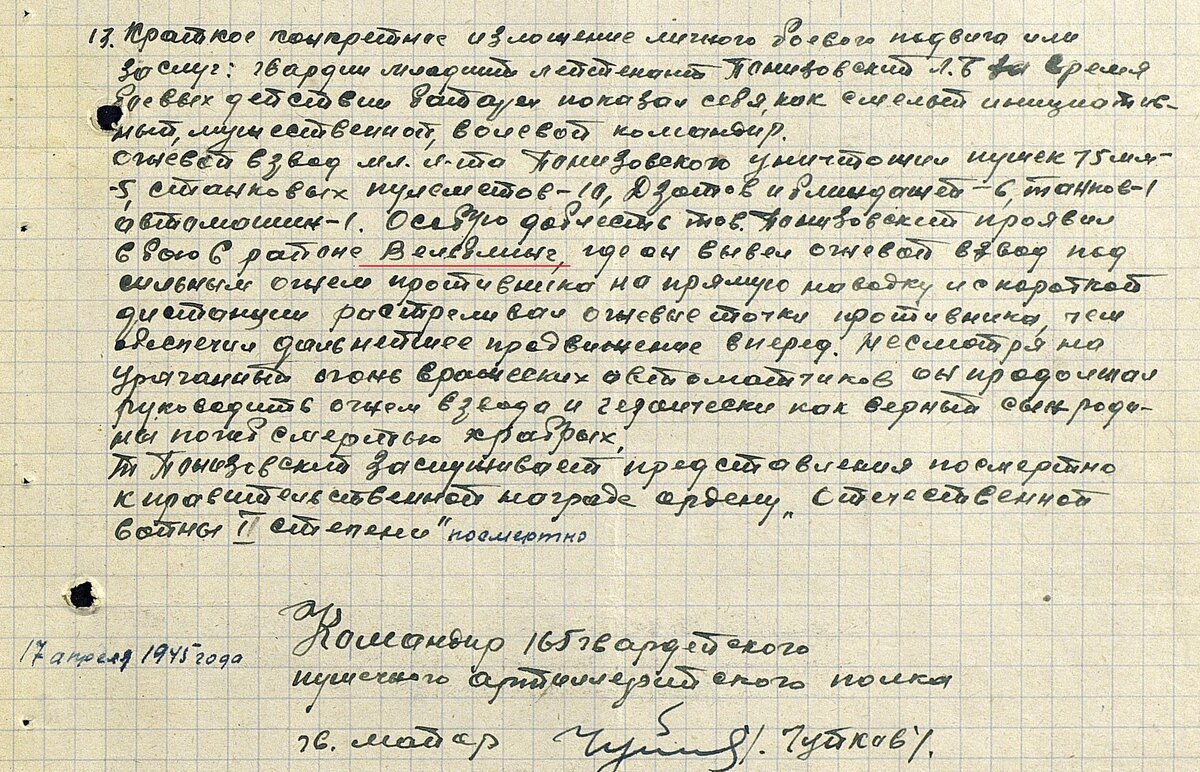 13. Краткое конкретное изложение личного боевого подвига или
заслуг: гвардии младший лейтенант Понизовский Л.Б за время
боевых действий батареи показал себя, как смелый инициатив-
ный, мужественной, волевой командир.
Огневой взвод мл. л-та Понизовского уничтожил пушек 75мм-
-5, станковых пулеметов-10, Дзотов и блиндажей-6, танков-1
автомашин-1. Особую доблесть тов. Понизовский проявил
в бою в районе Вельблинг, где он вывел огневой взвод под
сильным огнем противника на прямую наводку и с короткой
дистанции расстреливал огневые точки противника, чем
обеспечил дальнейшее продвижение вперед. Несмотря на
ураганный огонь вражеских автоматчиков он продолжал
руководить огнем взвода и героически как верный сын роди-
ны погиб смертью храбрых.
т Понизовский заслуживает представления посмертно
к правительственной награде ордену „Отечественной
войны II степени" посмертно
Командир 165 гвардейского
17 апреля 1945 года
пушечного артиллерийского полка
гв. майор /. Чуйков/.